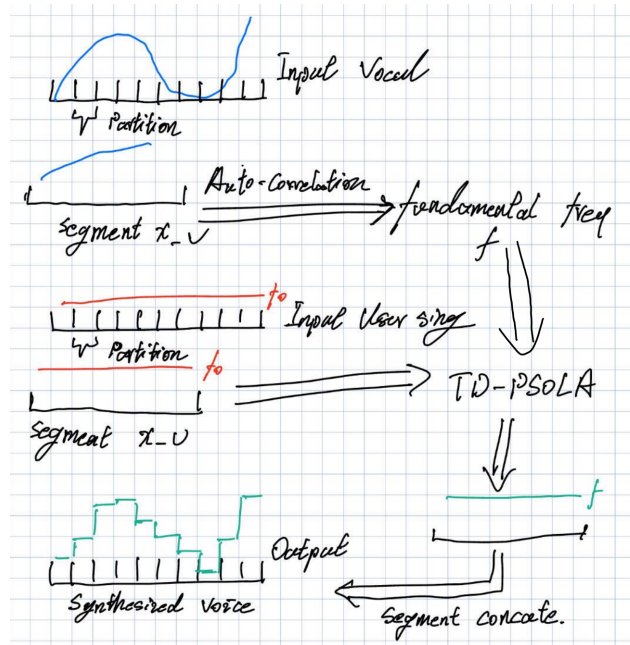 Input Vocal
Partition
Auto-Correlation
Segment x_v
fundamental freq
f
f0
Input User sing
Partition
f0
TD-PSOLA
Segment x_U
f
Output
Synthesized Voice
Segment concate.